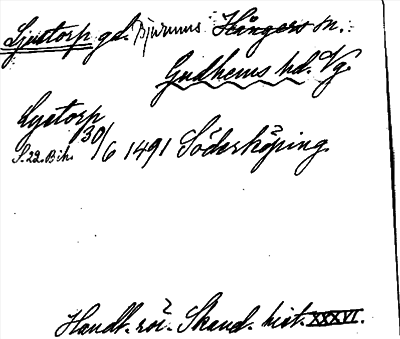 Ljustorp gd. Bjurums Hångers sn.
Gudhems hd. Vg.
Lystorp
S. 22. Bih. 30/6 1491 Söderköping
Handl. rör. Skand. hist. XXXVI.